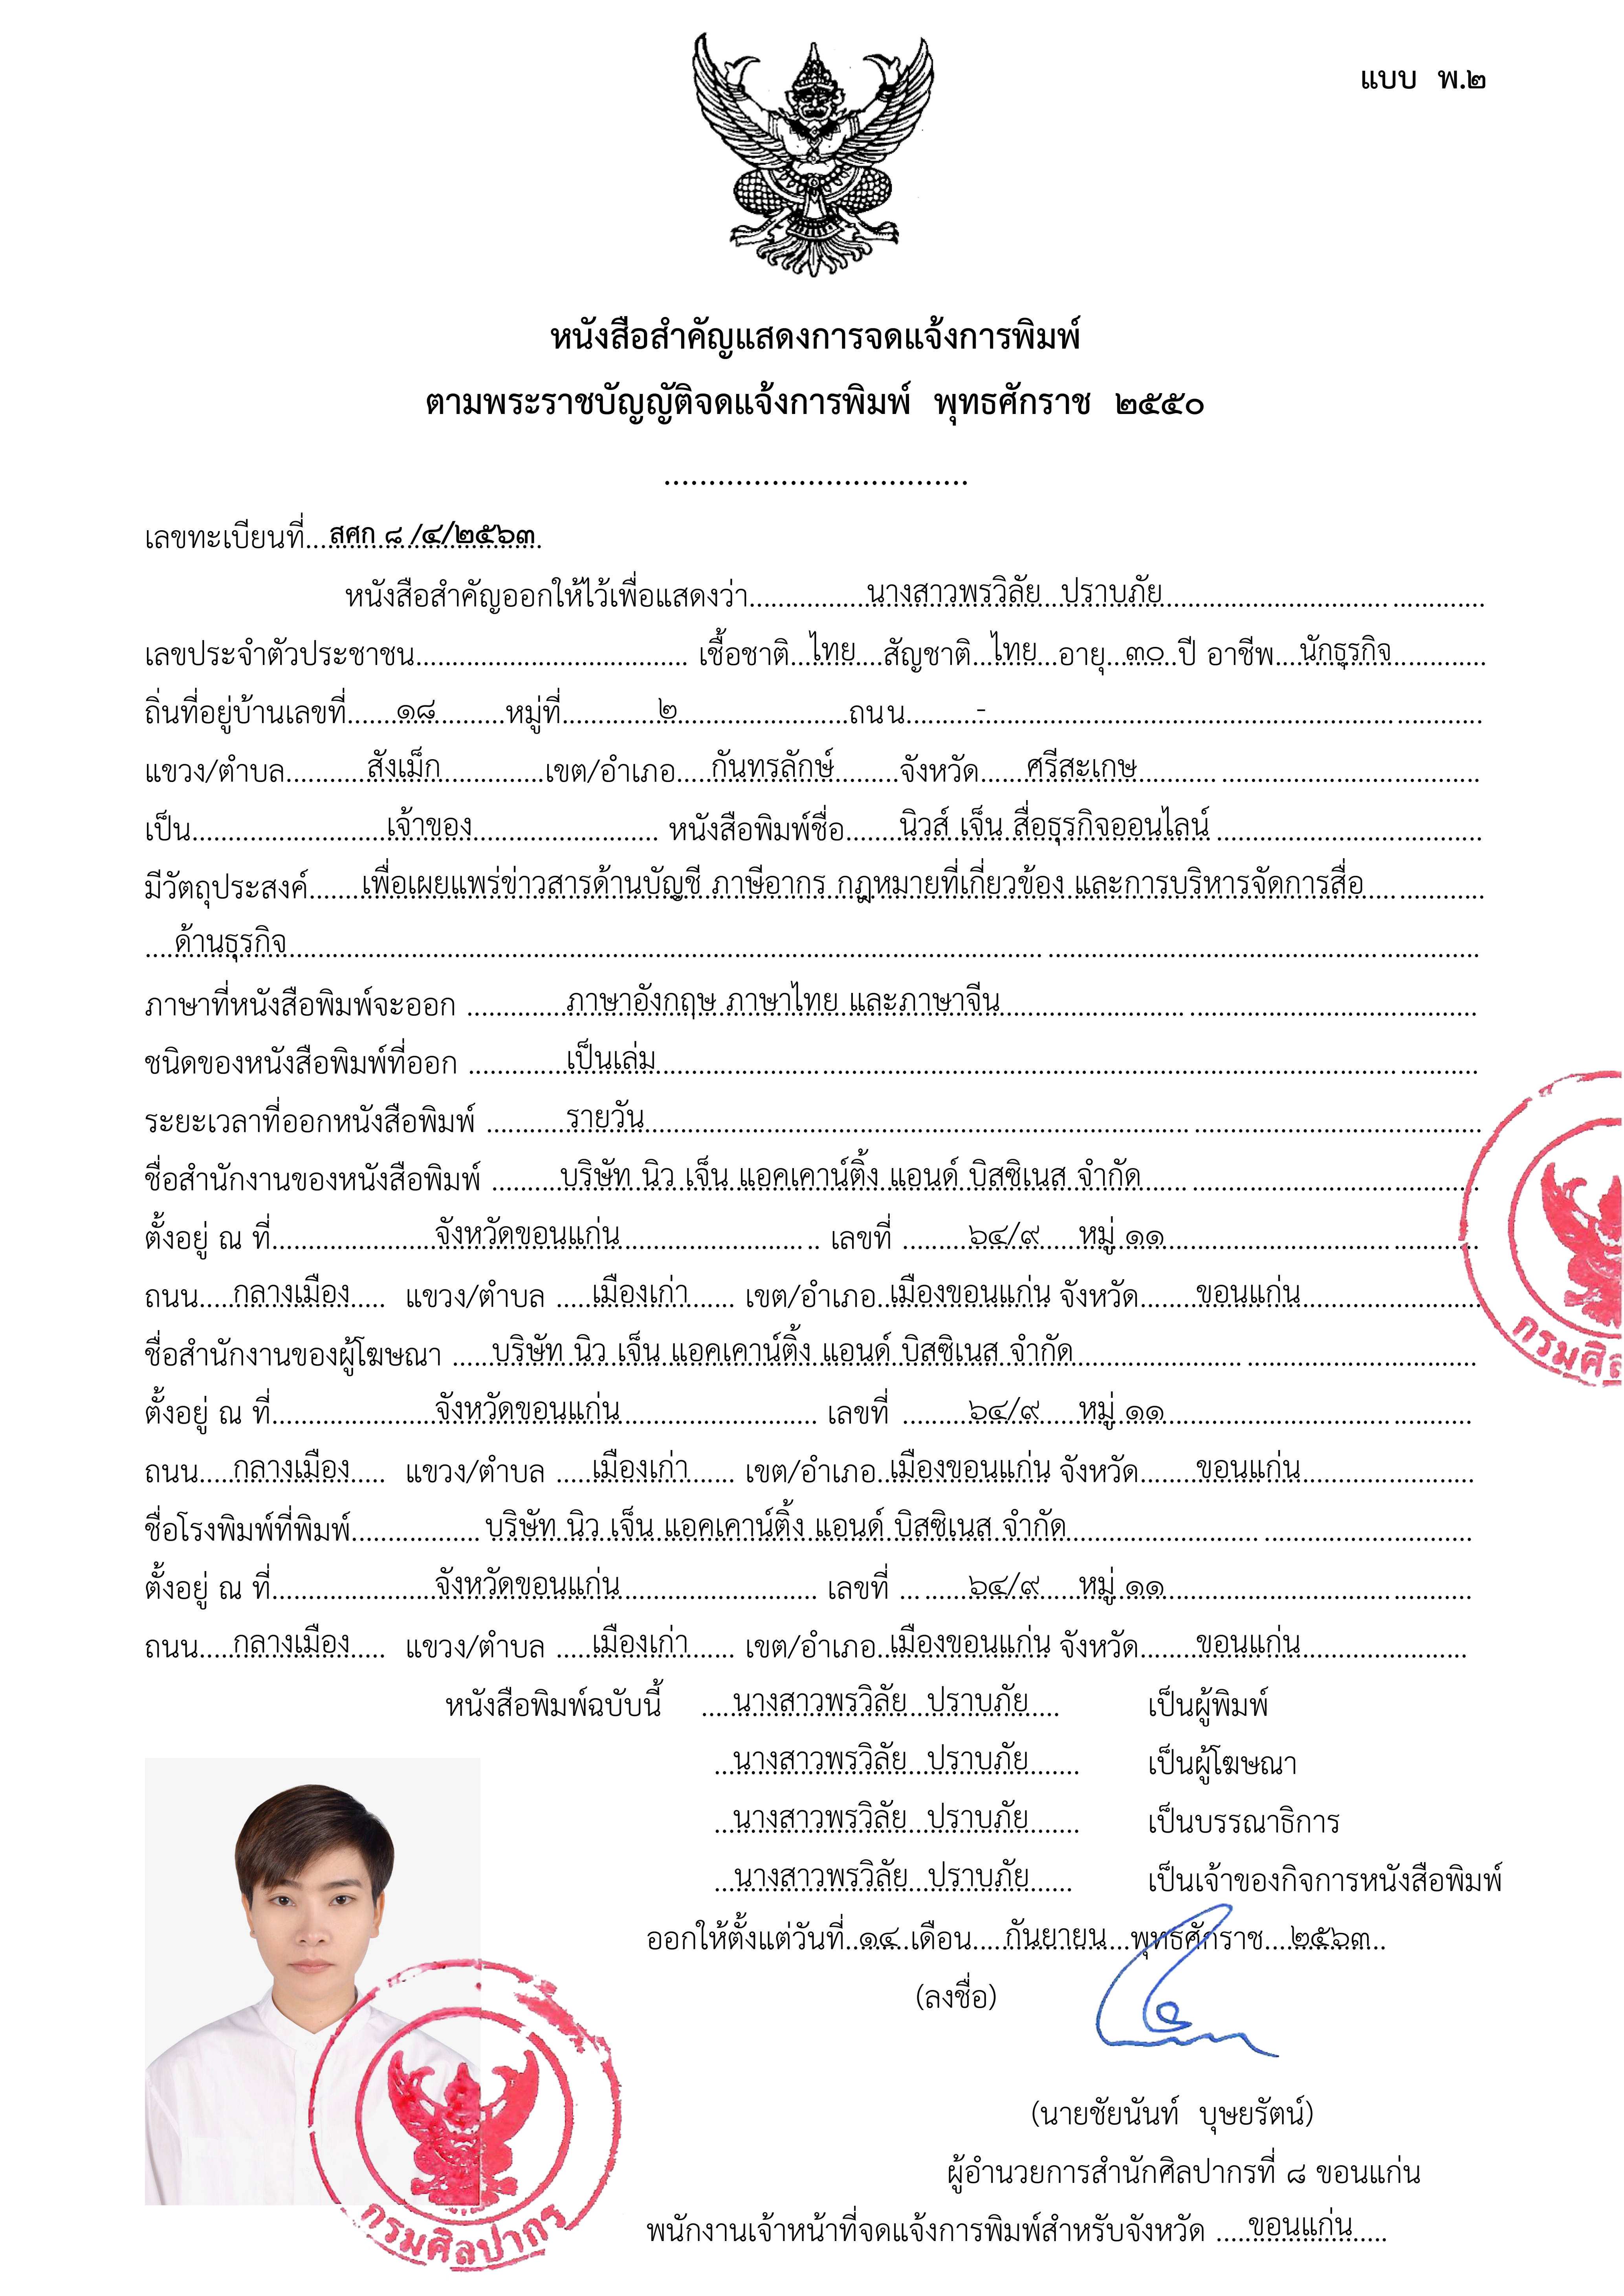 แบบ พ.๒
หนังสือสำคัญแสดงการจดแจ้งการพิมพ์
ตามพระราชบัญญัติจดแจ้งการพิมพ์ พุทธศักราช ๒๕๕๐
..................................
เลขทะเบียนที่...สศก ๘ /๔/๒๕๖๓
หนังสือสำคัญออกให้ไว้เพื่อแสดงว่า...นางสาวพรวิลัย ปราบภัย...
เลขประจำตัวประชาชน... เชื้อชาติ...ไทย...สัญชาติ...ไทย...อายุ...๓๐...ปี อาชีพ...นักธุรกิจ...
ถิ่นที่อยู่บ้านเลขที่...๑๘...หมู่ที่...๒...ถนน...-...
แขวง/ตำบล...สังเม็ก...เขต/อำเภอ...กันทรลักษ์...จังหวัด...ศรีสะเกษ...
เป็น...เจ้าของ... หนังสือพิมพ์ชื่อ...นิวส์ เจ็น สื่อธุรกิจออนไลน์...
มีวัตถุประสงค์...เพื่อเผยแพร่ข่าวสารด้านบัญชี ภาษีอากร กฎหมายที่เกี่ยวข้อง และการบริหารจัดการสื่อ...
...ด้านธุรกิจ...
ภาษาที่หนังสือพิมพ์จะออก ...ภาษาอังกฤษ ภาษาไทย และภาษาจีน...
ชนิดของหนังสือพิมพ์ที่ออก ...เป็นเล่ม...
ระยะเวลาที่ออกหนังสือพิมพ์ ...รายวัน...
ชื่อสำนักงานของหนังสือพิมพ์ ...บริษัท นิว เจ็น แอคเคาน์ติ้ง แอนด์ บิสซิเนส จำกัด...
ตั้งอยู่ ณ ที่...จังหวัดขอนแก่น... เลขที่ ...๖๔/๙ หมู่ ๑๑...
ถนน...กลางเมือง... แขวง/ตำบล ...เมืองเก่า... เขต/อำเภอ...เมืองขอนแก่น จังหวัด...ขอนแก่น...
ชื่อสำนักงานของผู้โฆษณา ...บริษัท นิว เจ็น แอคเคาน์ติ้ง แอนด์ บิสซิเนส จำกัด...
ตั้งอยู่ ณ ที่...จังหวัดขอนแก่น... เลขที่ ...๖๔/๙ หมู่ ๑๑...
ถนน...กลางเมือง... แขวง/ตำบล ...เมืองเก่า... เขต/อำเภอ...เมืองขอนแก่น จังหวัด...ขอนแก่น...
ชื่อโรงพิมพ์ที่พิมพ์...บริษัท นิว เจ็น แอคเคาน์ติ้ง แอนด์ บิสซิเนส จำกัด...
ตั้งอยู่ ณ ที่...จังหวัดขอนแก่น... เลขที่ ...๖๔/๙ หมู่ ๑๑...
ถนน...กลางเมือง... แขวง/ตำบล ...เมืองเก่า... เขต/อำเภอ...เมืองขอนแก่น จังหวัด...ขอนแก่น...
หนังสือพิมพ์ฉบับนี้ ...นางสาวพรวิลัย ปราบภัย... เป็นผู้พิมพ์
...นางสาวพรวิลัย ปราบภัย... เป็นผู้โฆษณา
...นางสาวพรวิลัย ปราบภัย... เป็นบรรณาธิการ
...นางสาวพรวิลัย ปราบภัย... เป็นเจ้าของกิจการหนังสือพิมพ์
ออกให้ตั้งแต่วันที่...๑๔...เดือน...กันยายน...พุทธศักราช...๒๕๖๓...
(ลงชื่อ)
(นายชัยนันท์ บุษยรัตน์)
ผู้อำนวยการสำนักศิลปากรที่ ๘ ขอนแก่น
พนักงานเจ้าหน้าที่จดแจ้งการพิมพ์สำหรับจังหวัด ...ขอนแก่น...
กรมศิลปากร
กรมศิล